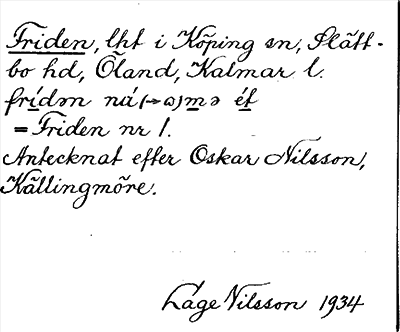 Friden, lht i Köping sn, Slätt-
bo hd, Öland, Kalmar l.
frídən nú(-ə)mə ét
= Friden nr 1.
Antecknat efter Oskar Nilsson,
Källingmöre.
Låge Nilsson 1934